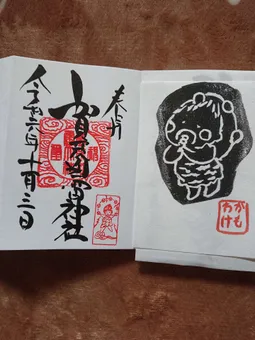 奉拝
賀茂別雷神社
令和六年十月三日
がも
わけ